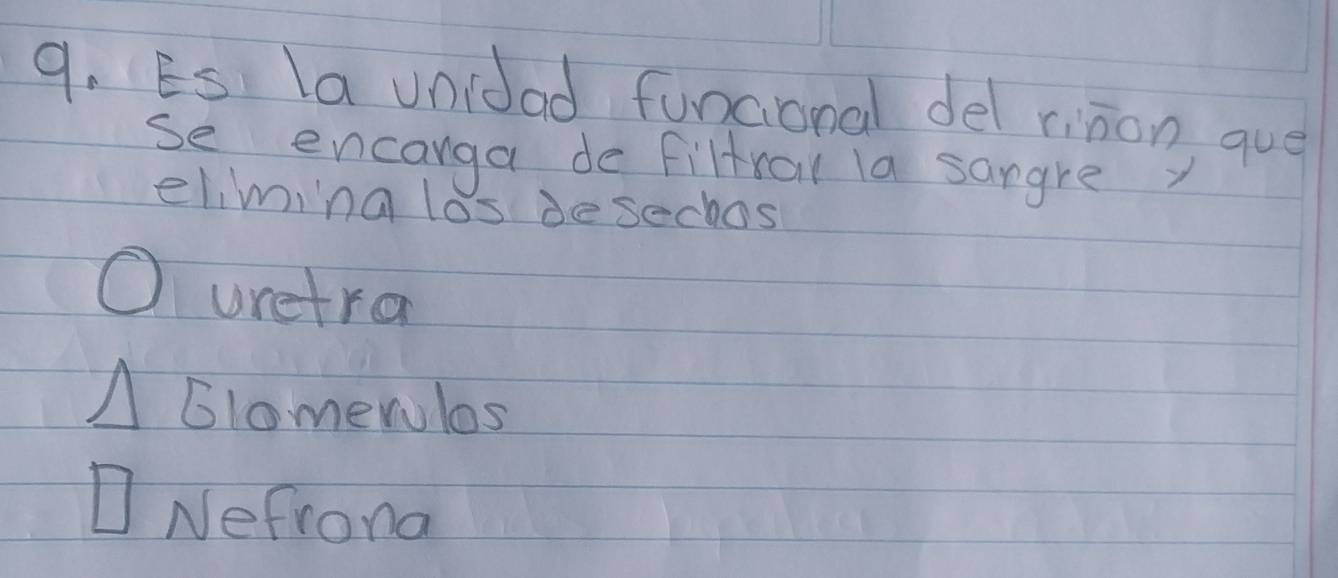 9. Es la unidad funcional del riñon que
se encarga de filtrar la sangre y
elimina los desechos
O uretra
Δ Glomerulos
□ Nefrona